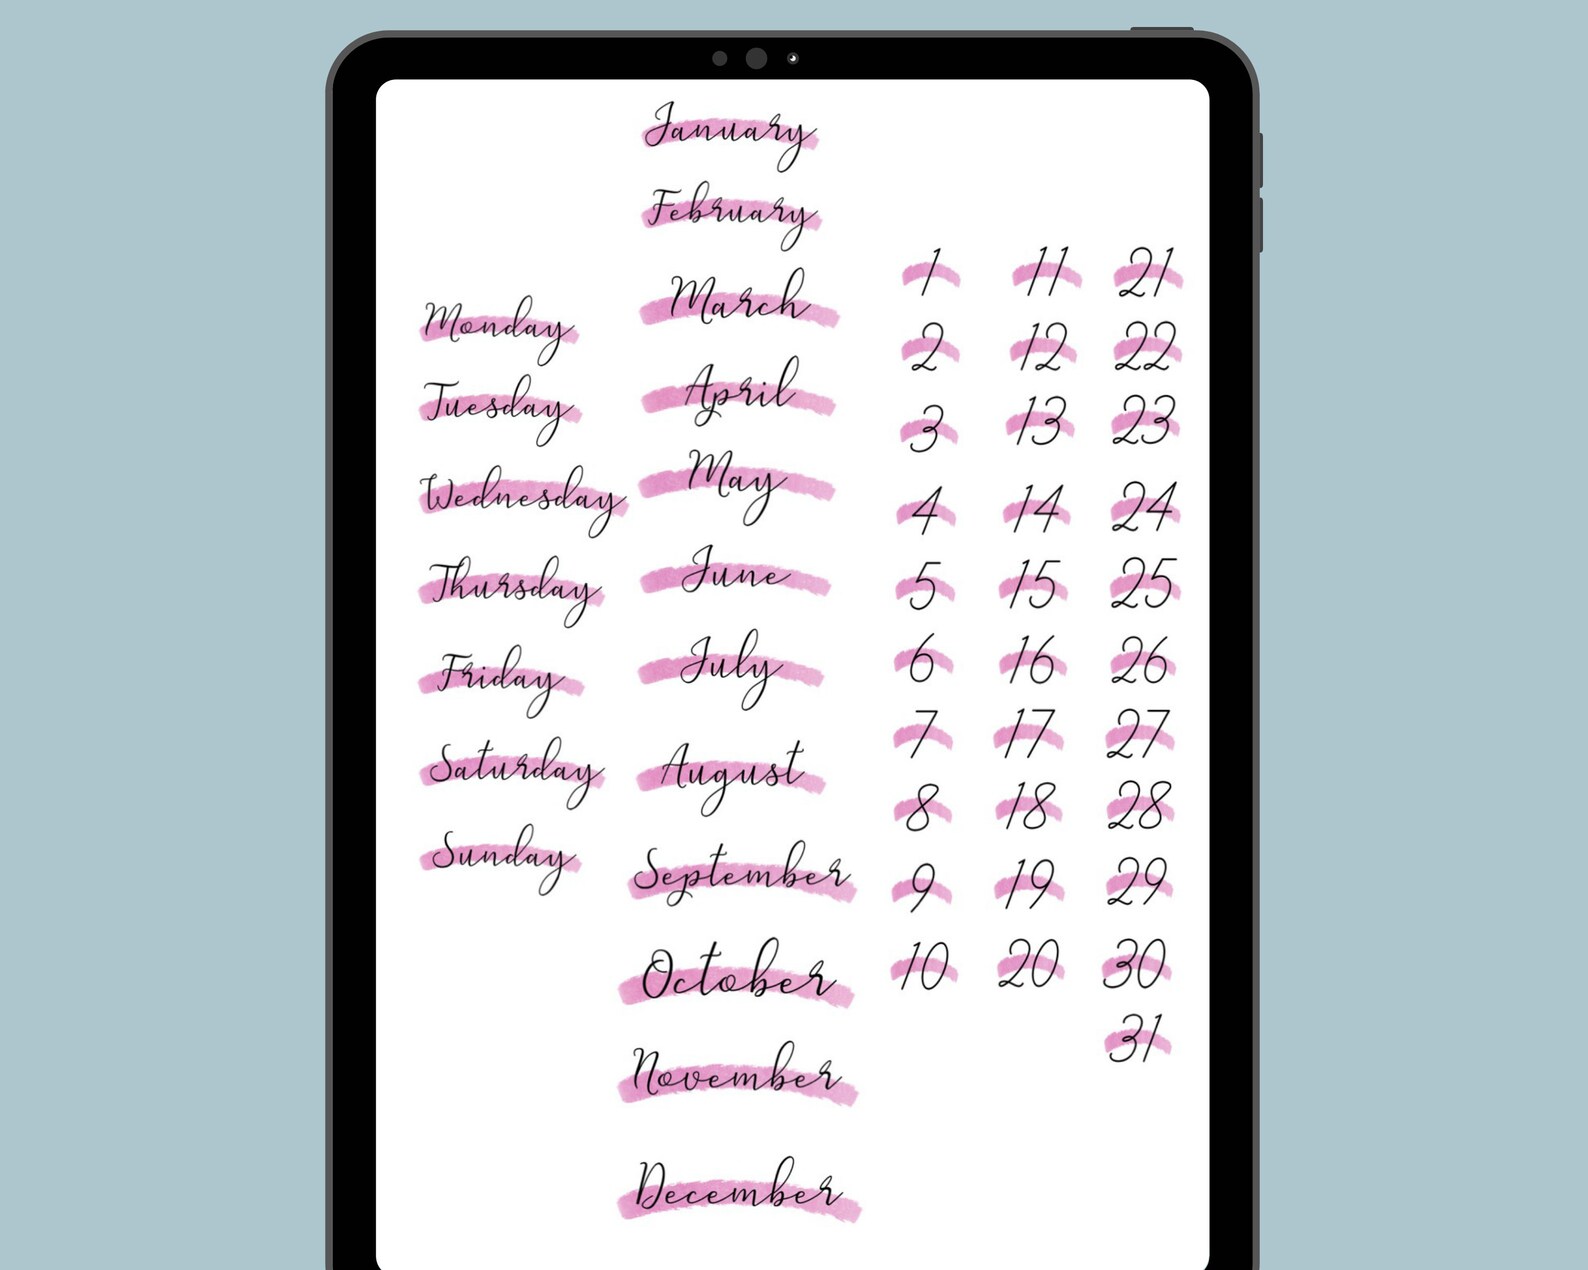 Monday
Tuesday
Wednesday
Thursday
Friday
Saturday
Sunday
January
February
March
April
May
June
July
August
September
October
November
December
1
2
3
4
5
6
7
8
9
10
11
12
13
14
15
16
17
18
19
20
21
22
23
24
25
26
27
28
29
30
31